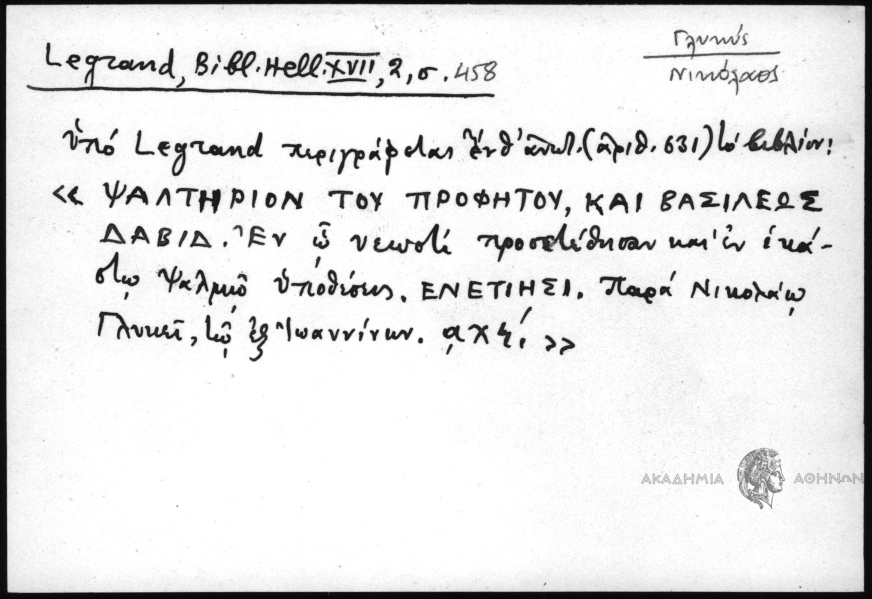 Legrand, Bibl. Hell. XVII, 2, σ. 458
Γλυκύς
Νικόλαος
ὑπό Legrand περιγράφεται ἐνθ' ἀνωτ. (ἀριθ. 631) τό βιβλίον:
« ΨΑΛΤΗΡΙΟΝ ΤΟΥ ΠΡΟΦΗΤΟΥ, ΚΑΙ ΒΑΣΙΛΕΩΣ
ΔΑΒΙΔ. Ἐν ᾧ νεωστί προσετέθησαν καί ἐν ἑκά-
στῳ ψαλμῷ ὑποθέσεις. ΕΝΕΤΙΗΣΙ. Παρά Νικολάῳ
Γλυκεῖ, τῷ ἐξ Ἰωαννίνων.
»
ΑΚΑΔΗΜΙΑ ΑΘΗΝΩΝ